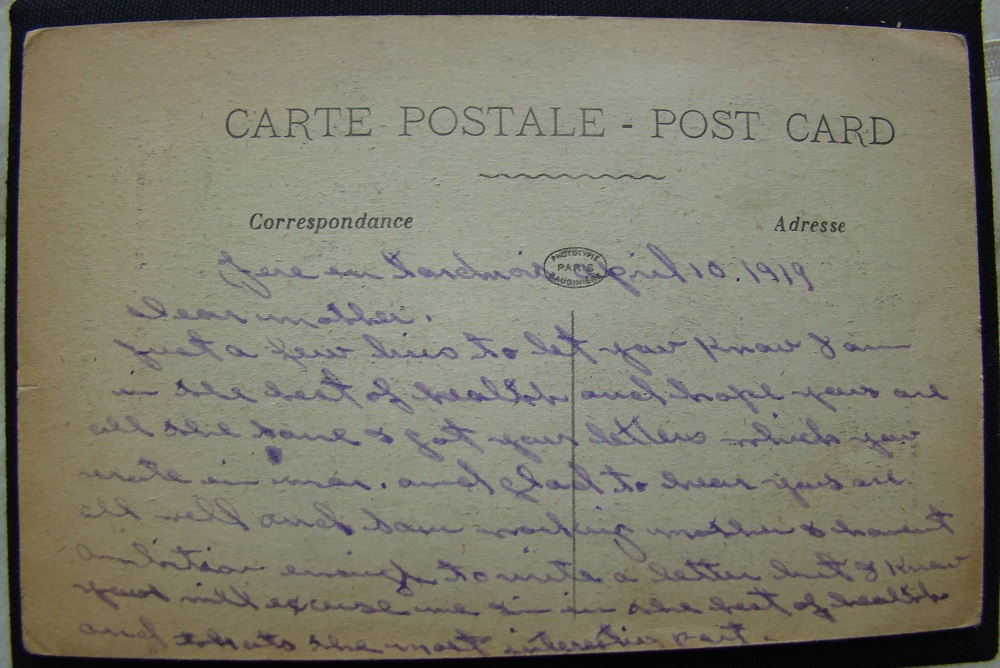 CARTE POSTALE - POST CARD
Correspondance
Adresse
PHOTOTYPIE
PARIS
BAUDINIÈRE
Fere en Tardnois April 10. 1919
Dear mother.
Just a few lines to let you know I am
in the best of health and hope yous are
all the same I got your letters which you
wrote in mar. and glad to hear yous are
all well and Sam working mother I havent
ambition enough to write a letter but I know
yous will excuse me in in the best of health
and thats the most interesting part.